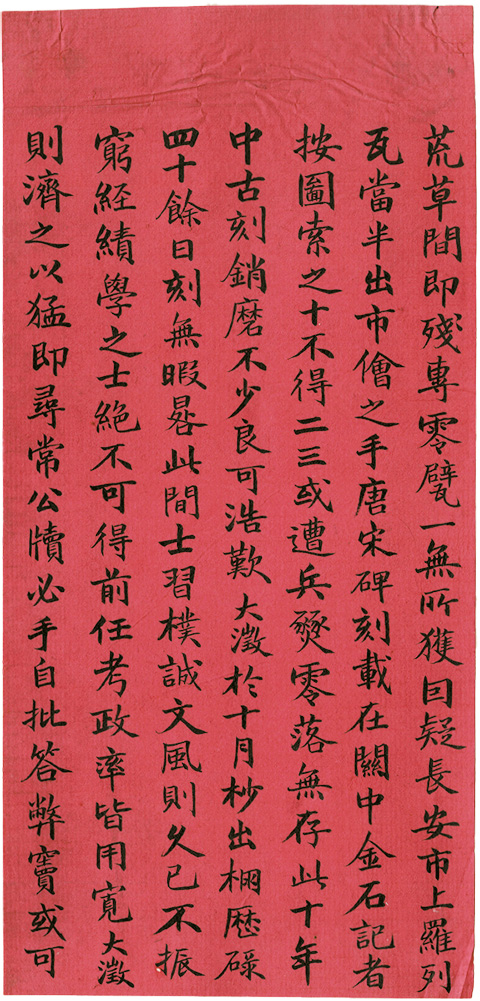 荒草間即殘專零甓一無所獲因疑長安市上羅列
瓦當半出市儈之手唐宋碑刻載在關中金石記者
按圖索之十不得二三或遭兵燹零落無存此十年
中古刻銷磨不少良可浩歎大澂於十月杪出棚歷碌
四十餘日刻無暇晷此間士習樸誠文風則久已不振
窮經績學之士絕不可得前任考政率皆用寬大澂
則濟之以猛即尋常公牘必手自批答弊竇或可